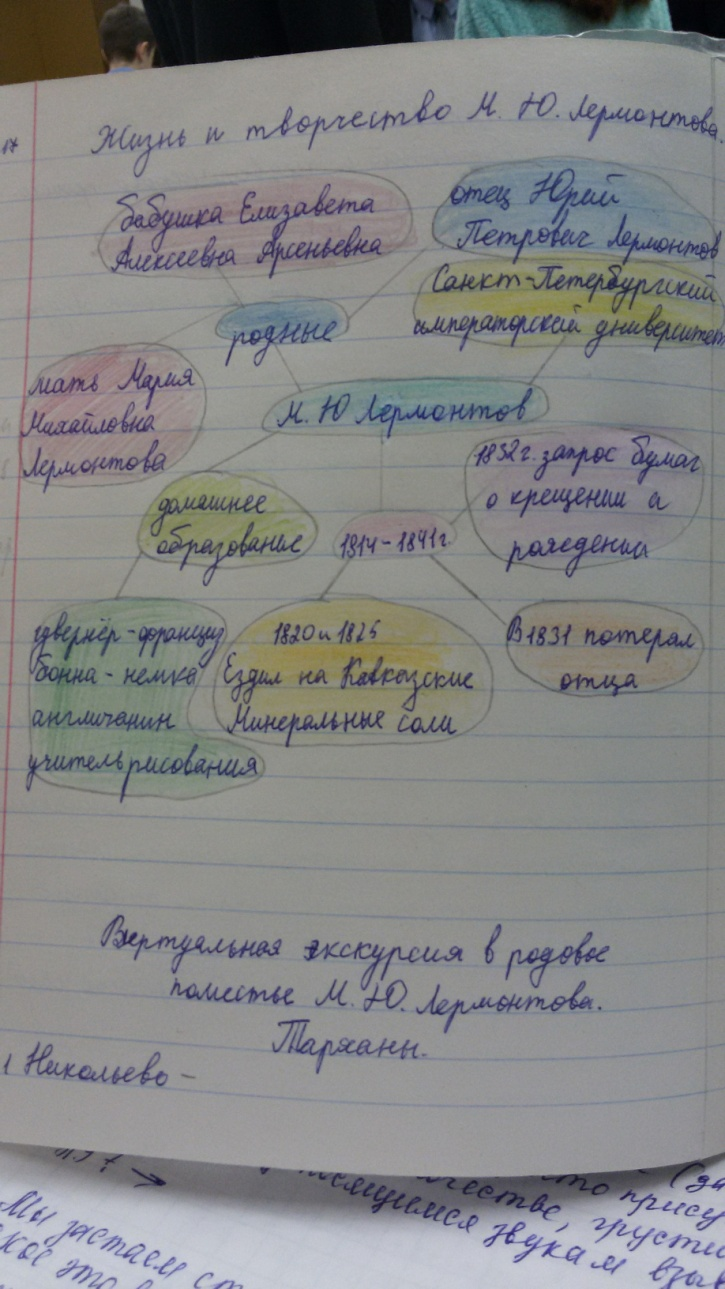 17
Жизнь и творчество М. Ю. Лермонтова.
бабушка Елизавета
Алексеевна Арсеньевна
отец Юрий
Петрович Лермонтов
Санкт-Петербургский
императорский университет
родные
мать Мария
Михайловна
Лермонтова
М. Ю Лермонтов
1832г. запрос бумаг
о крещении и
рождении
домашнее
образование
1914-1841г.
гувернёр-француз
бонна - немка
англичанин
учитель рисования
1820 и 1825
Ездил на Кавказские
Минеральные соли
В 1831 потерял
отца
Вертуальная экскурсия в родовое
поместье М. Ю. Лермонтова.
Тарханы.
1 Никольево -
звукам
Мы застаем